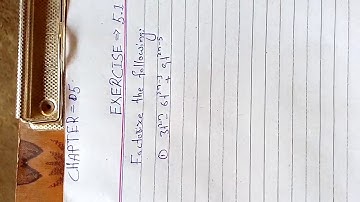 CHAPTER = 05
EXERCISE => 5.1
Factorize the following:
① 3l²ⁿ - 6l³ⁿ⁻³ + 9l²ⁿ⁻⁵